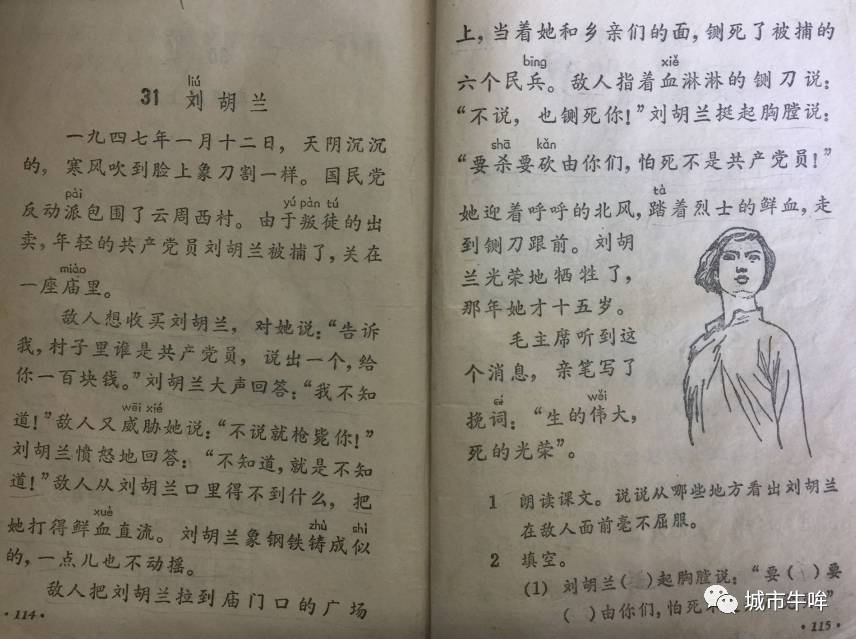 liú
31 刘胡兰
一九四七年一月十二日，天阴沉沉
的，寒风吹到脸上象刀割一样。国民党
pài yú pàn tú
反动派包围了云周西村。由于叛徒的出
卖，年轻的共产党员刘胡兰被捕了，关在
miào
一座庙里。
敌人想收买刘胡兰，对她说：“告诉
我，村子里谁是共产党员，说出一个，给
你一百块钱。”刘胡兰大声回答：“我不知
wēi xié
道！”敌人又威胁她说：“不说就枪毙你！”
刘胡兰愤怒地回答：“不知道，就是不知
道！”敌人从刘胡兰口里得不到什么，把
xuè
她打得鲜血直流。刘胡兰象钢铁铸成似
zhù shì
的，一点儿也不动摇。
敌人把刘胡兰拉到庙门口的广场
·114·
上，当着她和乡亲们的面，铡死了被捕的
bīng xiě
六个民兵。敌人指着血淋淋的铡刀说：
“不说，也铡死你！”刘胡兰挺起胸膛说：
shā kǎn
“要杀要砍由你们，怕死不是共产党员！”
tà
她迎着呼呼的北风，踏着烈士的鲜血，走
到铡刀跟前。刘胡
兰光荣地牺牲了，
那年她才十五岁。
毛主席听到这
个消息，亲笔写了
cí wěi
挽词：“生的伟大，
死的光荣”。
1 朗读课文。说说从哪些地方看出刘胡兰
在敌人面前毫不屈服。
2 填空。
(1) 刘胡兰( )起胸膛说：“要( )要
( )由你们，怕死不
”
·115·
城市牛哞